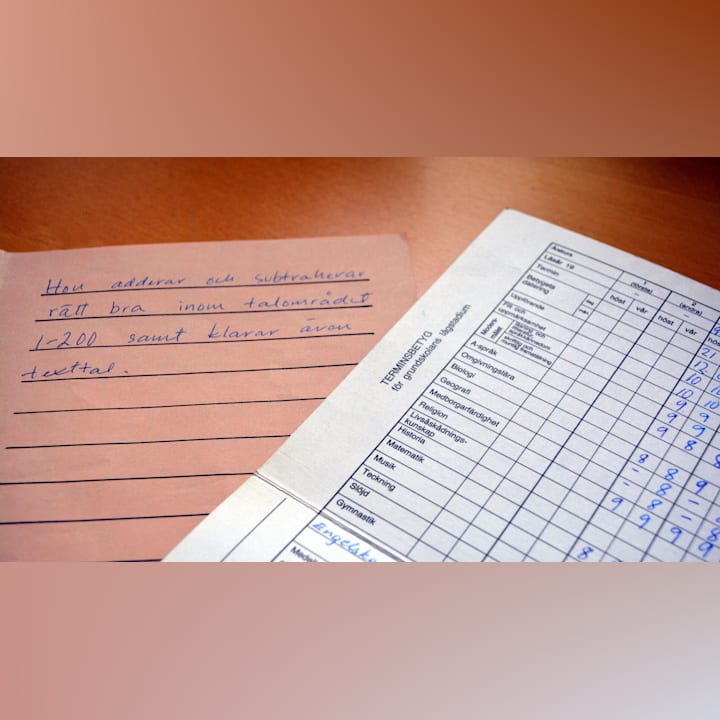 Hon adderar och subtraherar
rätt bra inom talområdet
1-200 samt klarar även
texttal.
TERMINSBETYG
för grundskolans lågstadium
Årskurs
1
(första)
2
(andra)
Läsår 19
Termin
höst
vår
höst
vår
Betygets
datering
Uppförande
Flit och
uppmärksamhet
Moders-
målet
A-språk
Omgivningslära
Biologi
Geografi
Medborgarfärdighet
Religion
Livsåskådnings-
kunskap
Historia
Matematik
Musik
Teckning
Slöjd
Gymnastik
Engelska